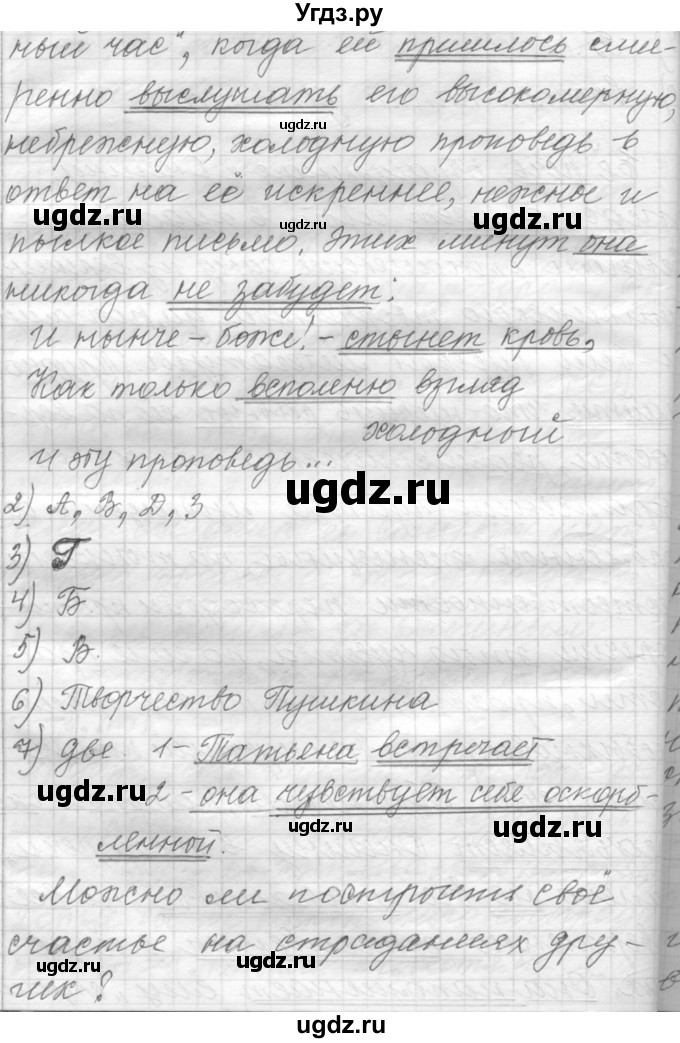 Угдз.ру
ный час", когда ей пришлось сми-
ренно выслушать его высокомерную,
ugdz.ru ugdz.ru
небрежную, холодную проповедь в
ответ на её искреннее, нежное и
ugdz.ru ugdz.ru
пылкое письмо. Этих минут она
никогда не забудет:
И нынче - боже! - стынет кровь,
Как только вспомню взгляд
холодный
И эту проповедь...
ugdz.ru
2) А, В, Д, З
3) Г
4) Б
5) В.
6) Творчество Пушкина
7) две 1 - Татьяна встречает
2 - она чувствует себя оскорб-
ugdz.ru ugdz.ru ugdz.ru
ленной.
Можно ли построить своё
счастье на страданиях дру-
ugdz.ru ugdz.ru ugdz.ru
гих?
ugdz.ru